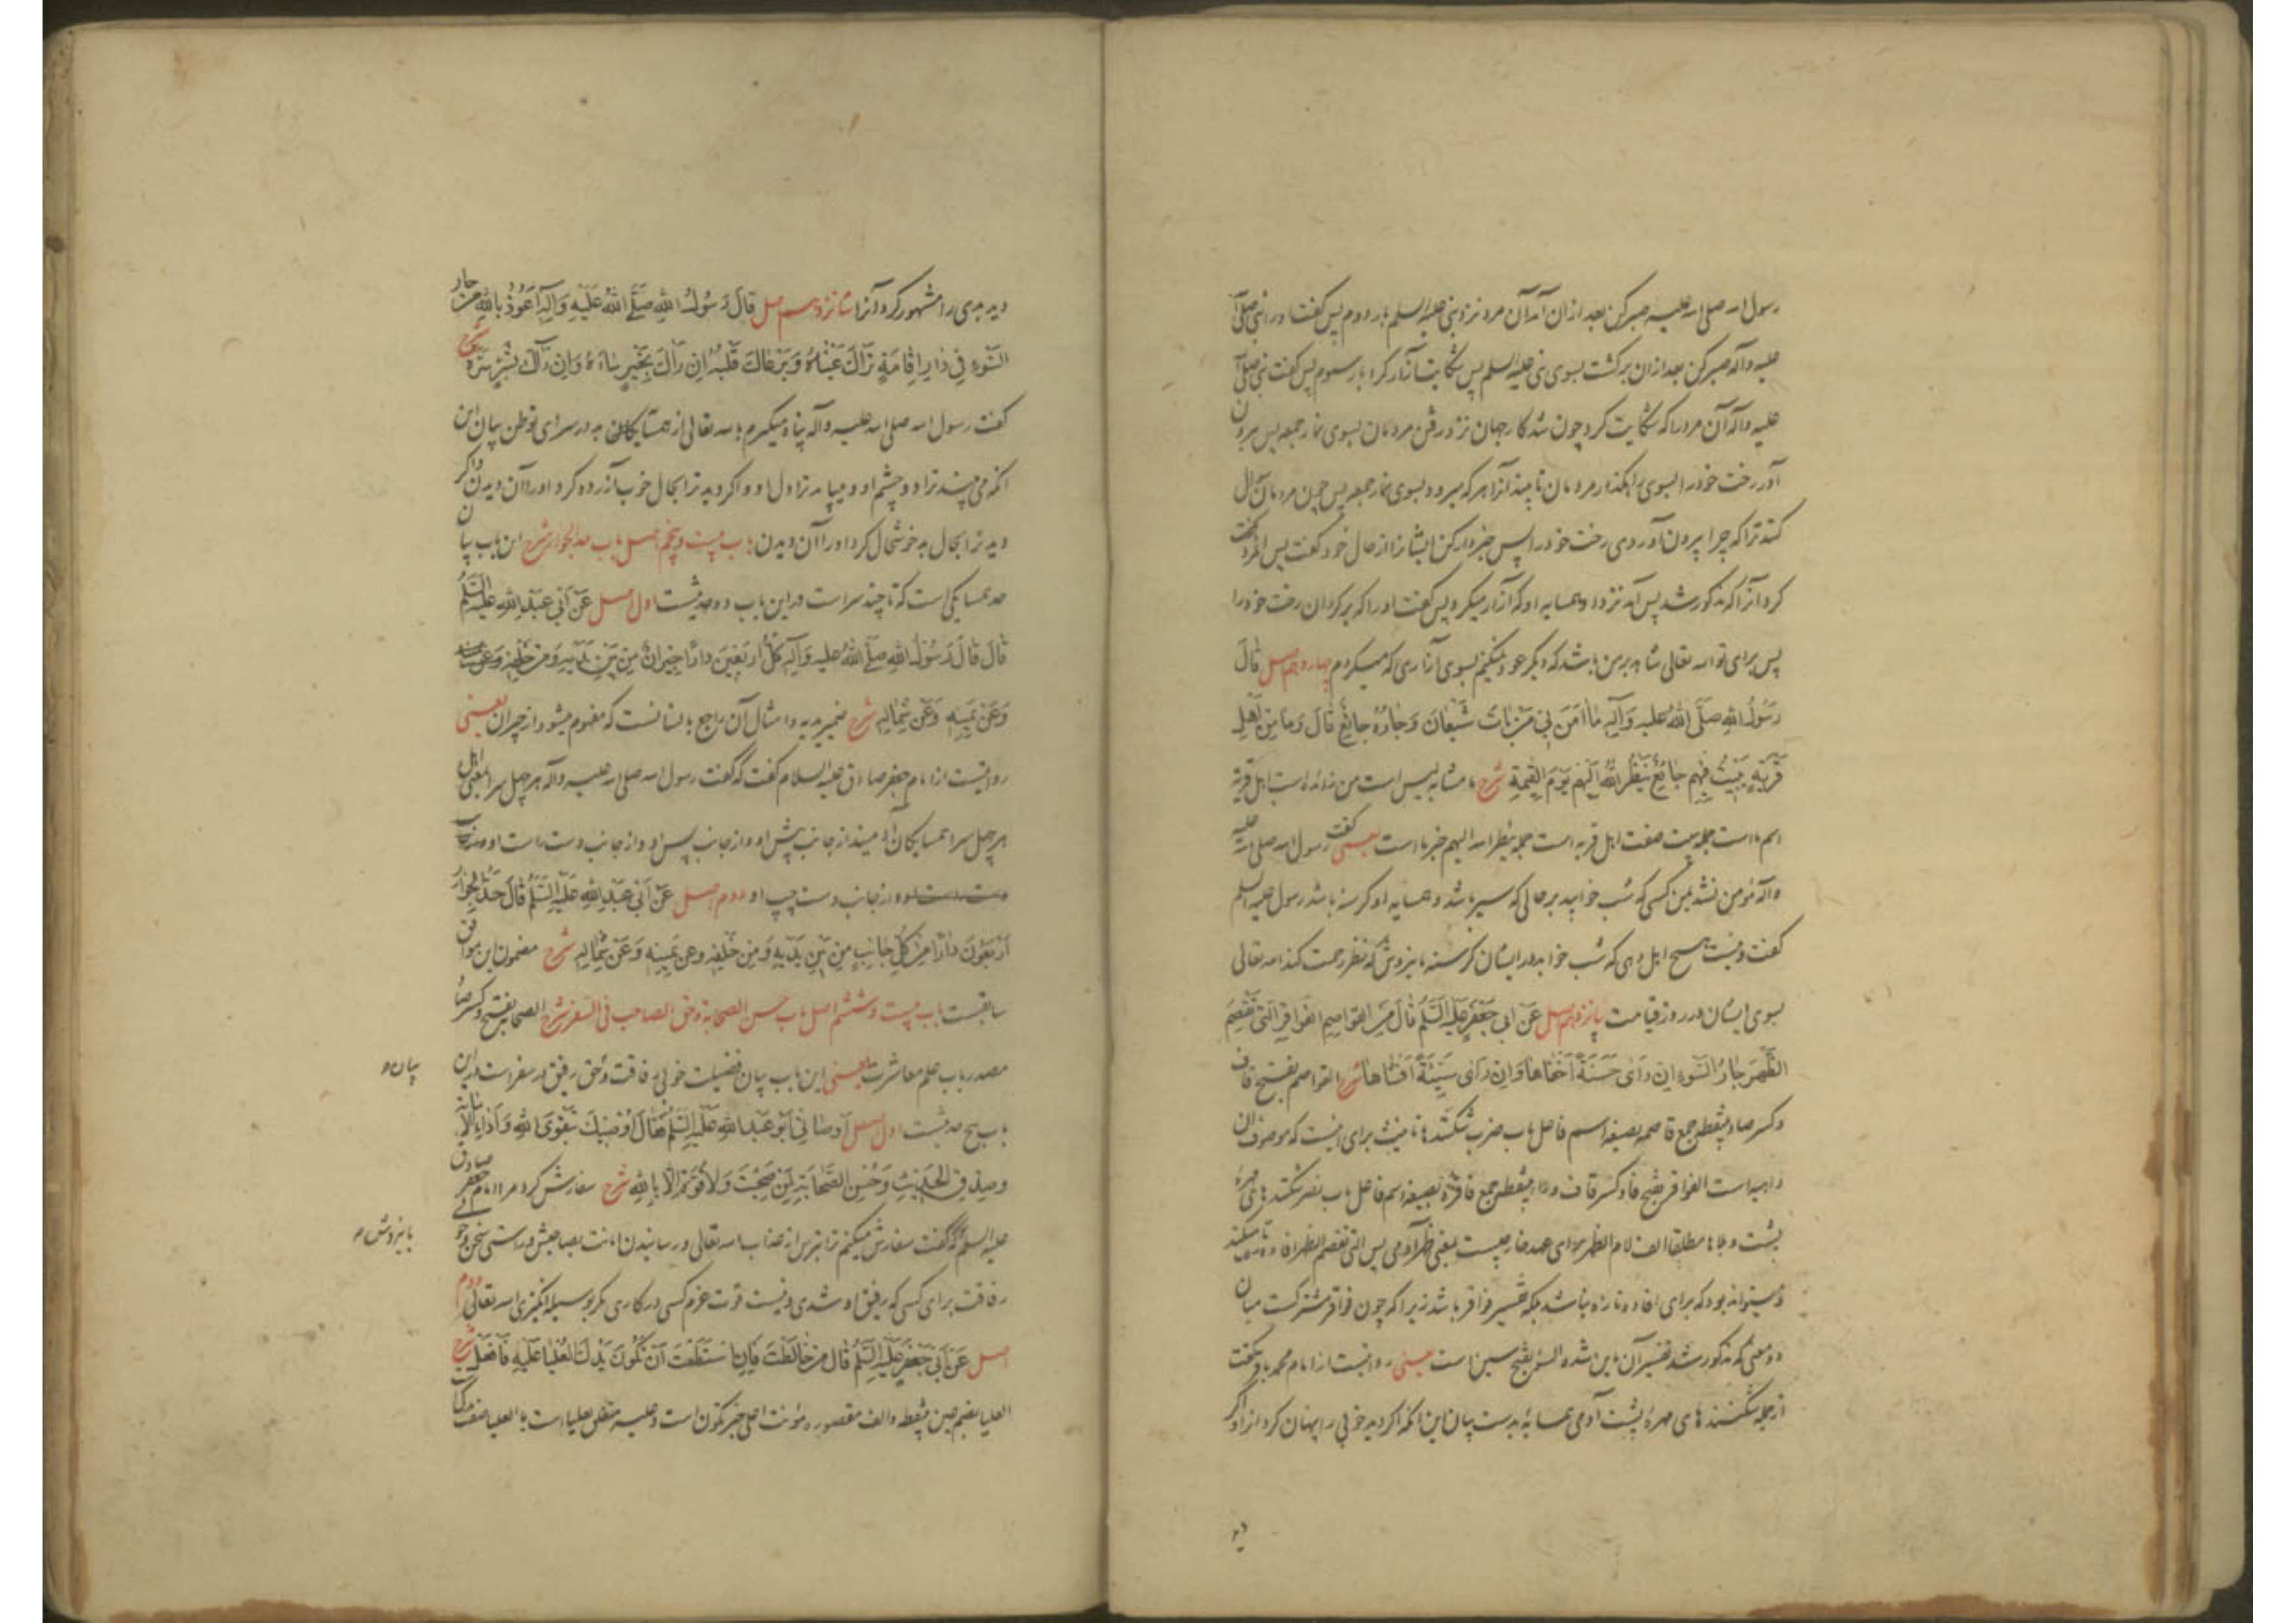 رسول الله صلی الله علیه صبر کن بعد از ان آمد آن مرد نزد نبی علیه السلم بار دوم پس گفت او را نبی صلی الله
علیه وآله صبر کن بعد از ان برگشت بسوی نبی علیه السلم پس شکایت آزار کرد بار سوم پس گفت نبی صلی الله
علیه وآله آن مرد را که شکایت کرد چون شد کار جهان نزد رفتن مردمان بسوی نماز جمعه پس بیرون
آور رخت خود را بسوی راهگذار مردمان تا بیند آنرا هر که میرود بسوی نماز جمعه پس چون مردمان سوال
کنند ترا که چرا بیرون آوردی رخت خود را پس خبردار کن ایشانرا از حال خود گفت پس آنمرد
کرد آنرا که مذکور شد پس آمد نزد او همسایه او که آزار میکرد پس گفت او را که برگردان رخت خود را
پس برای تو الله تعالی شاهد بر من باشد که دیگر عود نمیکنم بسوی آزاری که میکردم چهاردهم اصل قَالَ
رَسُولُ اللهِ صَلَّى اللهُ عليه وَآلِهِ مَا آمَنَ بِي مَنْ بَاتَ شَبْعَانَ وَجَارُهُ جَائِعٌ قَالَ وَمَا مِنْ أَهْلِ
قَرْيَةٍ يَبِيتُ فِيهِمْ جَائِعٌ يَنْظُرُ اللهُ إِلَيْهِمْ يَوْمَ الْقِيمَةِ شرح ما مشابه لیس است من زائده است اهل قریة
اسم ما است جمله یبیت صفت اهل قریه است جمله ینظر الله الیهم خبر ما است یعنی گفت رسول الله صلی الله علیه
وآله مؤمن نشد بمن کسی که شب خوابید بر حالی که سیر باشد و همسایه او گرسنه باشد رسول علیه السلم
گفت و نیست هیچ اهل دهی که شب خوابد در ایشان گرسنه بنیزوش که نظر رحمت کند الله تعالی
بسوی ایشان در روز قیامت پانزدهم اصل عَنْ ابی جَعْفَرٍ عَلَيْهِ السَّلَمُ قَالَ مِنَ القواصِمِ الفَوَاقِرِ الَّتِي تَقْصِمُ
الظَّهْرَ جَارُ السَّوْءِ إِن رَأَى حَسَنَةً أَخْفَاهَا وَإِنْ رَأَى سَيِّئَةً أَفْشَاهَا شرح القواصم بفتح قاف
وکسر صاد بینقطه جمع قاصمه بصیغه اسم فاعل باب ضرب شکننده ها تأنیث برای اینست که موصوف ان
داهیه است الفواقر بفتح فا وکسر قاف و را بینقطه جمع فاقره بصیغه اسم فاعل باب نصر شکننده های مهرهٔ
پشت و بلاها مطلقا الف لام الظهر برای عهد خارجیست بمعنی ظهر آدمی پس التی تقصم الظهر افاده تازه میکند
و میتواند بود که برای افاده تازه نباشد بلکه تفسیر فواقر باشد زیرا که چون فواقر مشترکست میان
دو معنی که مذکور شد تفسیر آن باین شده السوء بفتح سین است یعنی روایتست از امام محمد باقر گفت
از جمله شکننده های مهرهٔ پشت آدمی همسایهٔ بد ست بیان این انکه اگر دید خوبی را پنهان کرد آنرا و اگر
دید
دید بدی را مشهور کرد آنرا شانزدهم اصل قَالَ رَسُولُ اللهِ صَلَّى اللهُ عَلَيْهِ وَآلِهِ أَعُوذُ بِاللهِ مِنْ جار
السَّوْءِ فِي دَارِ إِقَامَةٍ تَرَاكَ عَيْنَاهُ وَيَرْعَاكَ قَلْبُهُ إِن رَآكَ بِخَيْرٍ سَاءَهُ وَإِنْ رَآكَ بِشَرٍّ سَرَّهُ شرح
گفت رسول الله صلی الله علیه وآله پناه میگیرم بالله تعالی از همسایگان بد در سرای توطن بیان این
انکه می بیند ترا دو چشم او و میپاید ترا دل او و اگر دید ترا بحال خوب آزرده کرد او را آن دیدن و اگر
دید ترا بحال بد خوشحال کرد او را آن دیدن باب بیست و پنجم اصل باب حد الجوار شرح این باب بیان
حد همسایگی است که تا چند سراست در این باب دو حدیثست اول اصل عَنْ أَبِي عَبْدِ اللهِ عَلَيْهِ السَّلَمُ
قَالَ قَالَ رَسُولُ اللهِ صلى اللهُ عليه وَآلِهِ كُلُّ أَرْبَعِينَ دارًا جِيرَانٌ مِنْ بَيْنِ يَدَيْهِ وَمِنْ خَلْفِهِ
وَعَنْ يَمِينِهِ وَعَنْ شِمَالِهِ شرح ضمیر یدیه و امثال آن راجع بانسانست که مفهوم میشود از جیران یعنی
روایتست از امام جعفر صادق علیه السلام گفت که گفت رسول الله صلی الله علیه وآله هر چهل سرا بمعنی اهل
هر چهل سرا همسایگان آدمیند از جانب پیش او و از جانب پس او و از جانب دست راست او
و از جانب دست چپ او دوم اصل عَنْ أَبِي عَبْدِ اللهِ عَلَيْهِ السَّلَمُ قَالَ حَدُّ الْجِوَارِ
أَرْبَعُونَ دَارًا مِنْ كُلِّ جَانِبٍ مِنْ بَيْنِ يَدَيْهِ وَمِنْ خَلْفِهِ وعن يَمِينِهِ وَعَنْ شِمَالِهِ شرح مضمون این موافق
سابقست باب بیست و ششم اصل باب حسن الصحابة وحق الصاحب فی السفر شرح الصحابه بفتح و کسر صاد
مصدر باب علم معاشرت یعنی این باب بیان فضیلت خوبی رفاقت و حق رفیق در سفر است در این
بیان و
باب پنج حدیثست اول اصل أوصَانِي أَبُو عَبْدِ اللهِ عَلَيْهِ السَّلَمُ فَقَالَ أُوصِيكَ بِتَقْوَى اللهِ وَأَدَاءِ الأمانة
وصدق الحَدِيثِ وَحُسْنِ الصَّحَابَةِ لِمَنْ صَحِبْتَ وَلا قُوَّةَ إِلَّا بِاللهِ شرح سفارش کرد مرا امام جعفر صادق
علیه السلم که گفت سفارش میکنم ترا بترس از عذاب الله تعالی و رسانیدن امانت بصاحبش و راستی سخن و خوبی
بنیزوش
رفاقت برای کسی که رفیق او شدی و نیست قوت عزم کسی در کاری مگر بوسیله انگیزی الله تعالی دوم
اصل عَنْ أَبِي جَعْفَرٍ عَلَيْهِ السَّلَمُ قَالَ مَنْ خَالَطْتَ فَإِنِ اسْتَطَعْتَ أَنْ تَكُونَ يَدُكَ العُلْيَا عَلَيْهِ فَافْعَلْ شرح
العلیا بضم عین بینقطه والف مقصوره مؤنث اعلی خبر تکون است و علیه متعلق بعلیا است یا العلیا صفت